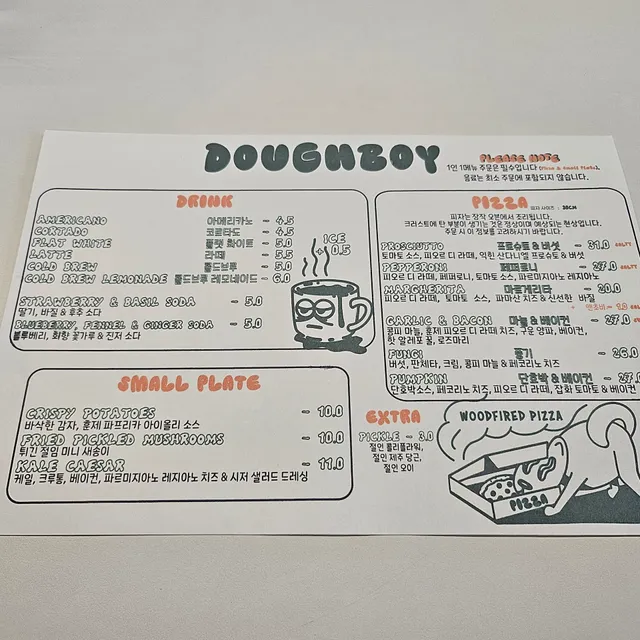 DOUGHBOY
PLEASE NOTE
1인 1메뉴 주문은 필수입니다 (Pizza & Small Plate),
음료는 최소 주문에 포함되지 않습니다.
DRINK
AMERICANO 아메리카노 - 4.5
CORTADO 코르타도 - 4.5
FLAT WHITE 플랫 화이트 - 5.0
LATTE 라떼 - 5.5
COLD BREW 콜드브루 - 5.0
COLD BREW LEMONADE 콜드브루 레모네이드 - 6.0
ICE
+ 0.5
STRAWBERRY & BASIL SODA - 5.0
딸기, 바질 & 후추 소다
BLUEBERRY, FENNEL & GINGER SODA - 5.0
블루베리, 회향 꽃가루 & 진저 소다
SMALL PLATE
CRISPY POTATOES - 10.0
바삭한 감자, 훈제 파프리카 아이올리 소스
FRIED PICKLED MUSHROOMS - 10.0
튀긴 절임 미니 새송이
KALE CAESAR - 11.0
케일, 크루통, 베이컨, 파르미지아노 레지아노 치즈 & 시저 샐러드 드레싱
PIZZA 피자 사이즈 : 30CM
피자는 장작 오븐에서 조리됩니다.
크러스트에 탄 부분이 생기는 것은 정상이며 예상되는 현상입니다.
주문 시 이 정보를 고려하시기 바랍니다.
PROSCIUTTO 프로슈토 & 버섯 - 31.0 SALTY
토마토 소스, 피오르 디 라떼, 익힌 산다니엘 프로슈토 & 버섯
PEPPERONI 페퍼로니 - 27.0 SALTY
피오르 디 라떼, 페퍼로니, 토마토 소스, 파르미지아노 레지아노
MARGHERITA 마르게리타 - 20.0
피오르 디 라떼, 토마토 소스, 파마산 치즈 & 신선한 바질
GARLIC & BACON 마늘 & 베이컨 - 27.0
콩피 마늘, 훈제 피오르 디 라떼 치즈, 구운 양파, 베이컨,
핫 할라피뇨 꿀, 로즈마리
FUNGI 풍기 - 26.0
버섯, 판체타, 크림, 콩피 마늘 & 페코리노 치즈
PUMPKIN 단호박 & 베이컨 - 27.0
단호박소스, 페코리노 치즈, 피오르 디 라떼, 잡화 토마토 & 베이컨
EXTRA
PICKLE - 3.0
절인 콜리플라워,
절인 제주 당근,
절인 오이
WOODFIRED PIZZA
PIZZA